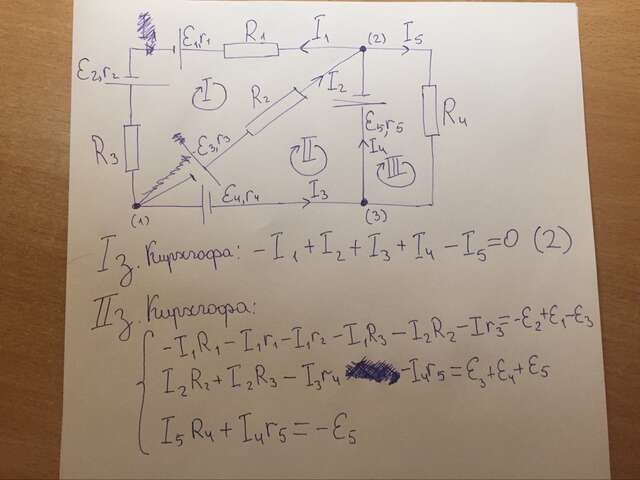 ε₁,r₁ R₁ I₁ (2) I₅
ε₂,r₂ I R₂ I₂
R₃ ε₃,r₃ II ε₅,r₅ I₄ III R₄
(1) ε₄,r₄ I₃ (3)
I з. Кирхгофа: -I₁+I₂+I₃+I₄-I₅=0 (2)
II з. Кирхгофа:
-I₁R₁-I₁r₁-I₁r₂-I₁R₃-I₂R₂-Ir₃=-ε₂+ε₁-ε₃
I₂R₂+I₂R₃-I₃r₄ -I₄r₅=ε₃+ε₄+ε₅
I₅R₄+I₄r₅=-ε₅